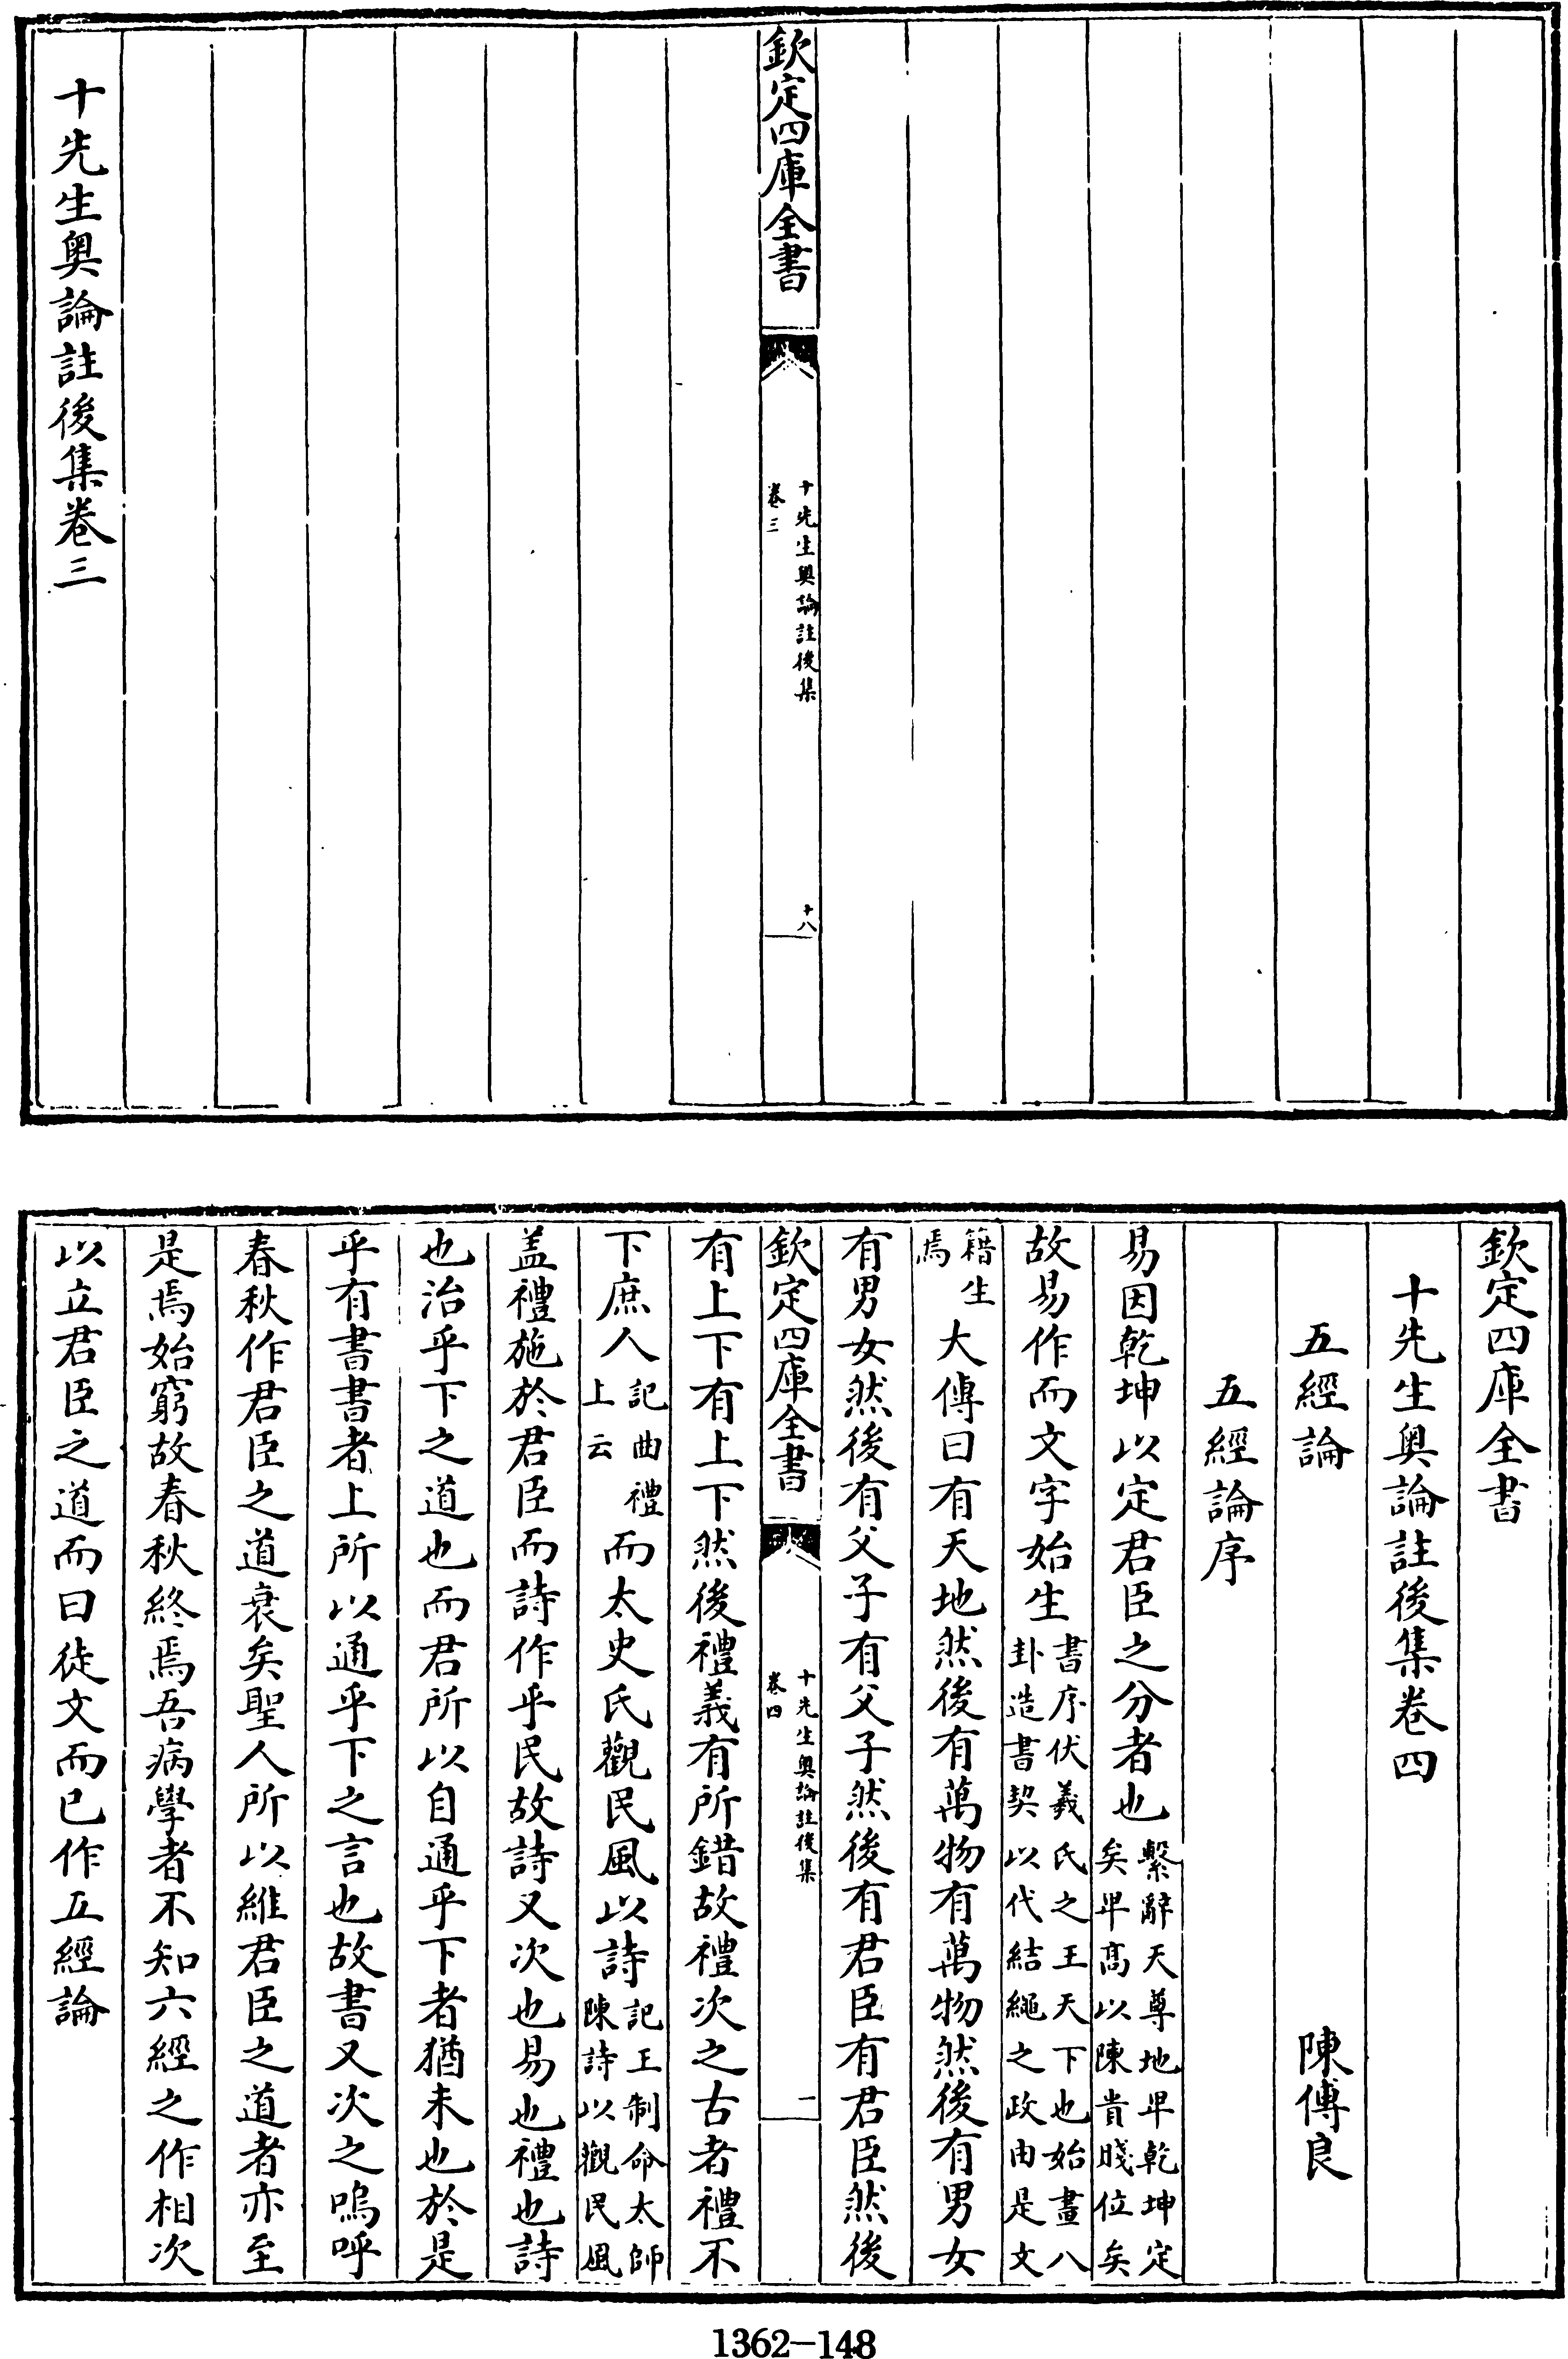 欽定四庫全書
十先生奥論註後集
卷三
十八
十先生奥論註後集卷三
欽定四庫全書
十先生奥論註後集卷四
五經論
陳傅良
五經論序
易因乾坤以定君臣之分者也繫辭天尊地卑乾坤定矣卑髙以陳貴賤位矣
故易作而文字始生書序伏羲氏之王天下也始畫八卦造書契以代結繩之政由是文
籍生焉大傳曰有天地然後有萬物有萬物然後有男女
有男女然後有父子有父子然後有君臣有君臣然後
欽定四庫全書
十先生奥論註後集
卷四
一
有上下有上下然後禮義有所錯故禮次之古者禮不
下庶人記曲禮上云而太史氏觀民風以詩記王制命太師陳詩以觀民風
盖禮施於君臣而詩作乎民故詩又次也易也禮也詩
也治乎下之道也而君所以自通乎下者猶未也於是
乎有書書者上所以通乎下之言也故書又次之嗚呼
春秋作君臣之道衰矣聖人所以維君臣之道者亦至
是焉始窮故春秋終焉吾病學者不知六經之作相次
以立君臣之道而曰徒文而已作五經論
1362-148